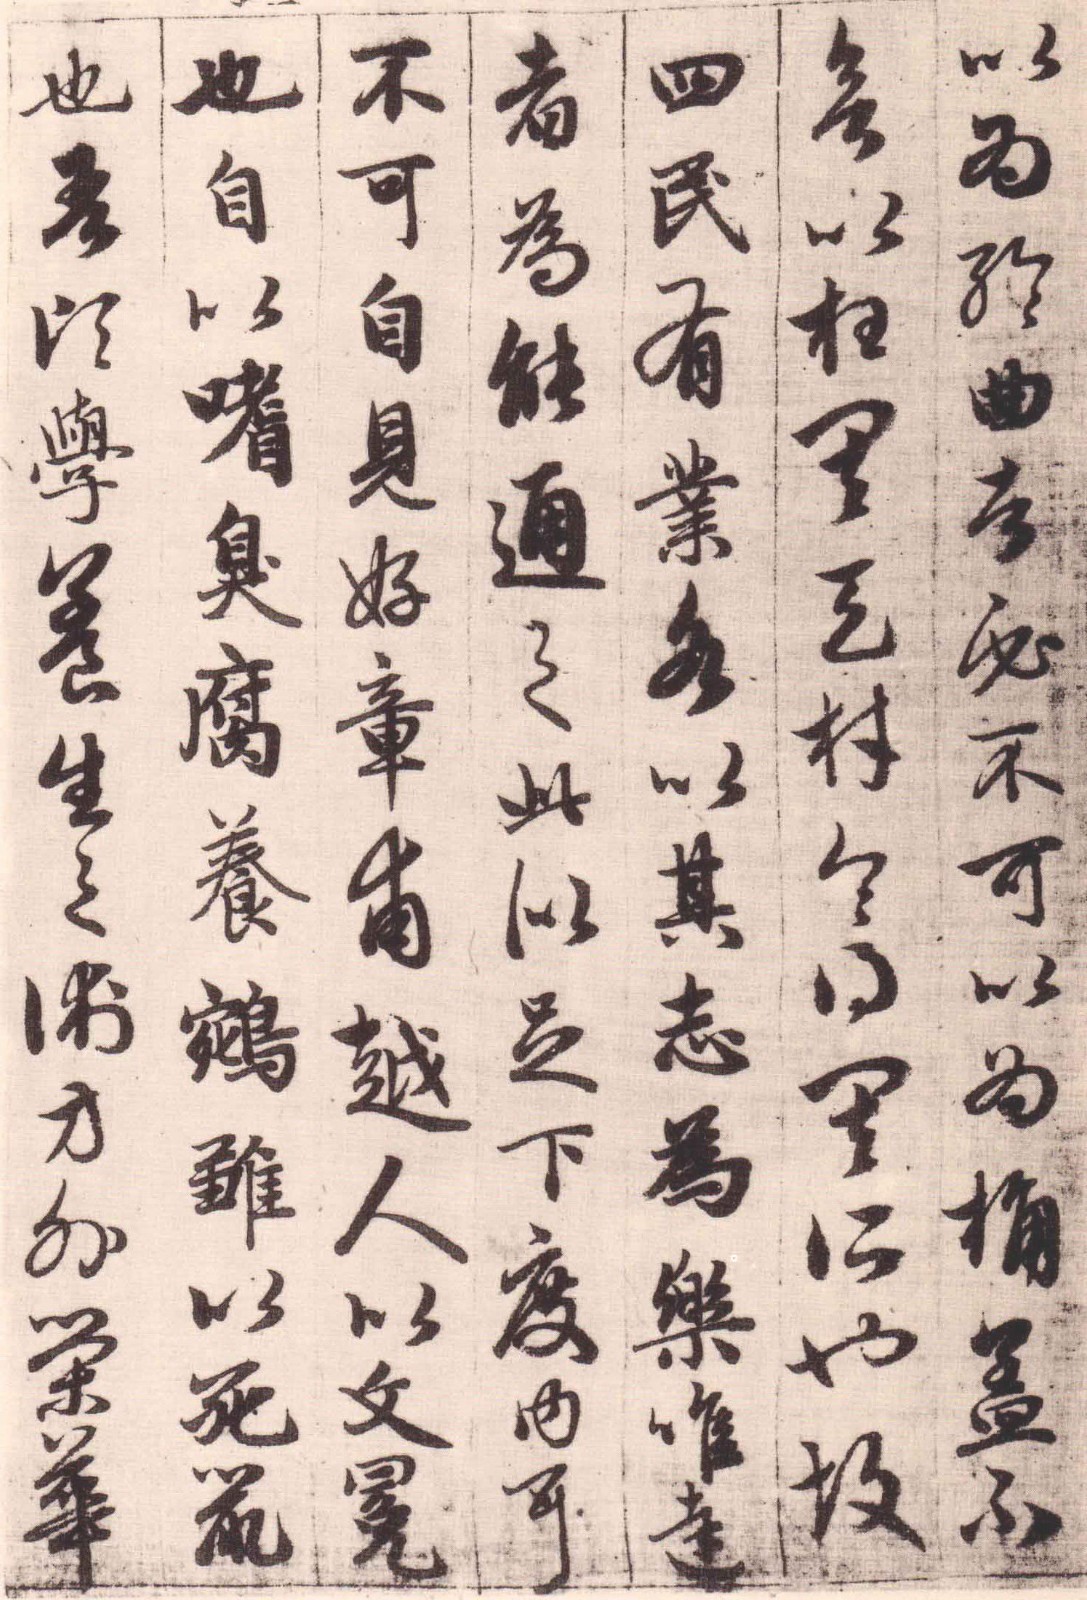 以為輪曲者必不可以為桷盖不
欲以枉其天材令得其所也故
四民有業各以其志為樂唯達
者為能通之此似足下度内耳
不可自見好章甫越人以文冕
也自以嗜臭腐養鵷雛以死鼠
也吾頃學養生之術方外榮華